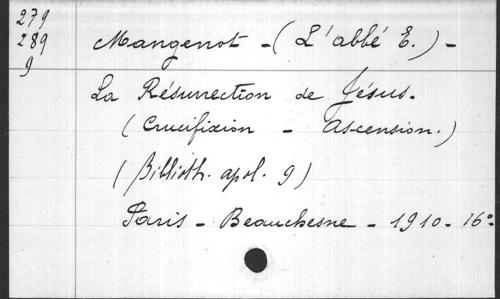 279
289
9
Mangenot - (L'abbé E.) -
La Résurrection de Jésus.
(Crucifixion - Ascension.)
(Biblioth. apol. 9)
Paris - Beauchesne - 1910 - 16°